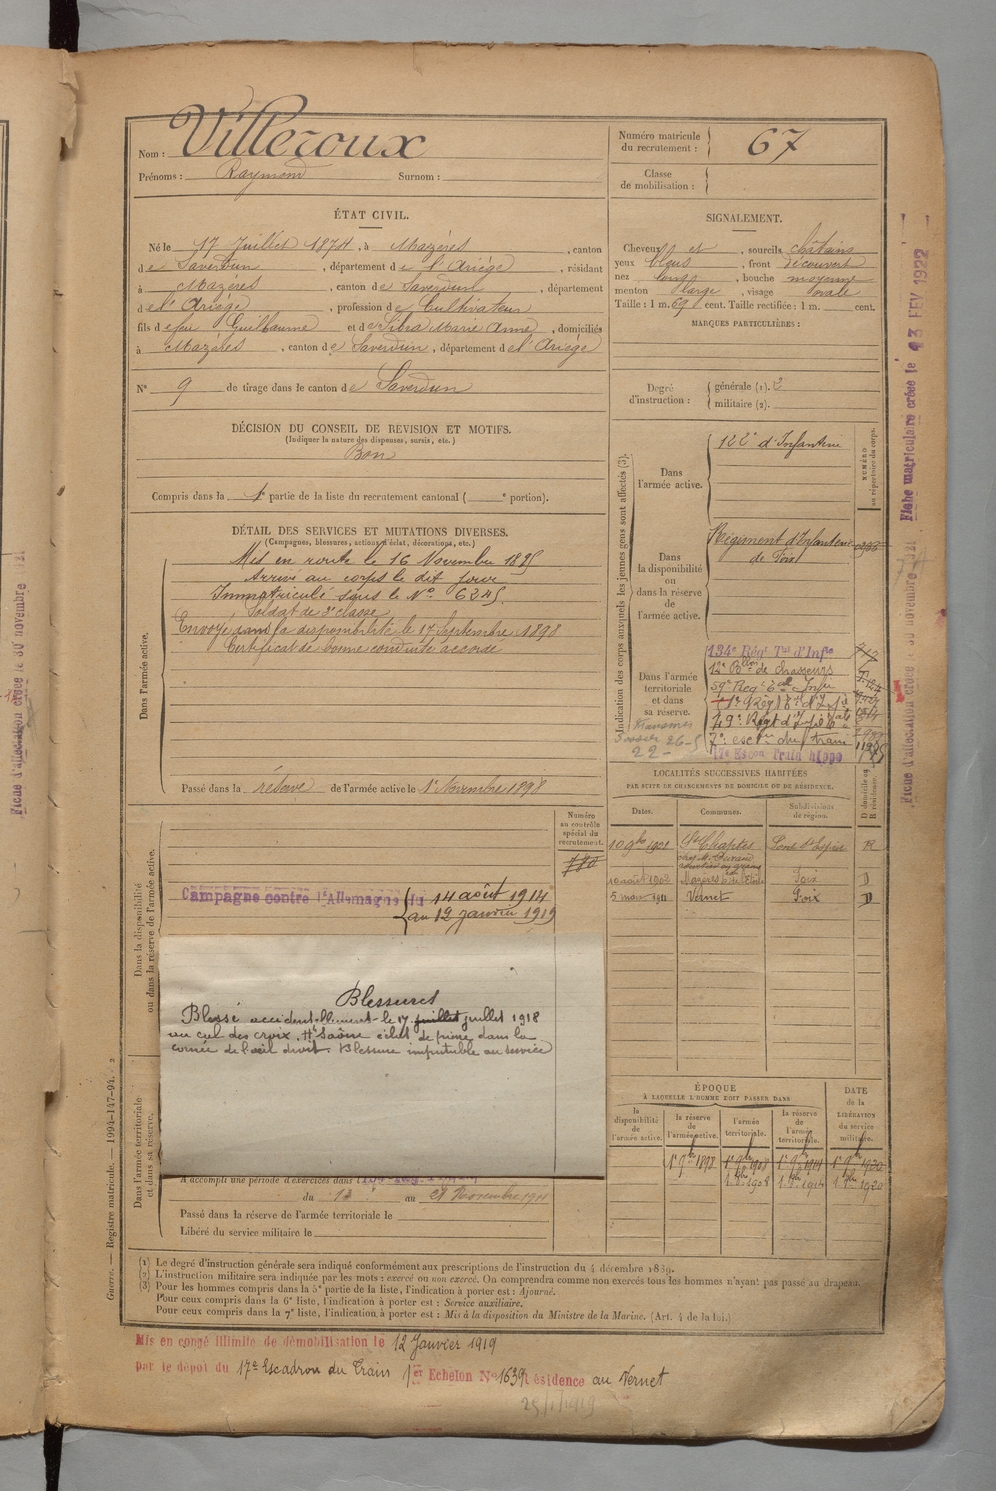 Nom : Villeroux
Prénoms : Raymond Surnom :
Numéro matricule du recrutement : 67
Classe de mobilisation :
ÉTAT CIVIL.
Né le 17 Juillet 1874, à Mazères, canton
de Saverdun, département de l'Ariège, résidant
à Mazères, canton de Saverdun, département
de l'Ariège, profession de Cultivateur
fils de feu Guillaume et de Marie Anne, domiciliés
à Mazères, canton de Saverdun, département de l'Ariège
N° 9 de tirage dans le canton de Saverdun
SIGNALEMENT.
Cheveux et, sourcils châtains
yeux bleus, front découvert
nez long, bouche moyenne
menton large, visage ovale
Taille : 1 m. 69 cent. Taille rectifiée : 1 m. cent.
MARQUES PARTICULIÈRES :
Degré d'instruction : générale (1). 2
militaire (2).
DÉCISION DU CONSEIL DE REVISION ET MOTIFS.
(Indiquer la nature des dispenses, sursis, etc.)
Bon
Compris dans la 1e partie de la liste du recrutement cantonal ( e portion).
DÉTAIL DES SERVICES ET MUTATIONS DIVERSES.
(Campagnes, blessures, actions d'éclat, décorations, etc.)
Dans l'armée active.
Mis en route le 16 Novembre 1895
Arrivé au corps le dit jour
Immatriculé sous le N° 6345
Soldat de 2e classe
Envoyé dans la disponibilité le 17 Septembre 1898
Certificat de bonne conduite accordé
Passé dans la réserve de l'armée active le 1er Novembre 1898
Indication des corps auxquels les jeunes gens sont affectés (3).
NUMÉRO au répertoire du corps.
Dans l'armée active.
122e d'Infanterie
Dans la disponibilité ou dans la réserve de l'armée active.
Régiment d'Infanterie
de Foix
Dans l'armée territoriale et dans sa réserve.
134e Régt Tal d'Infie
12e Bon de chasseurs
59e Reg. Infie
49e Régt d'Inf
7e escon du train
17e Escon Train hippo
LOCALITÉS SUCCESSIVES HABITÉES
PAR SUITE DE CHANGEMENTS DE DOMICILE OU DE RÉSIDENCE.
Dates. Communes. Subdivisions de région. D domicile ou R résidence.
10 9bre 1901 Ste Chaptes Pont St Esprit R
10 août 1902 Mazères Foix D
5 mars 1911 Vernet Foix D
Dans la disponibilité ou dans la réserve de l'armée active.
Numéro au contrôle spécial du recrutement.
780
Campagne contre l'Allemagne du 14 août 1914
au 12 janvier 1919
Blessures
Blessé accidentellement le 17 juillet juillet 1918
au col des croix. Hte Saône éclat de prime dans la
cornée de l'œil droit. Blessure imputable au service
Dans l'armée territoriale et dans sa réserve.
A accompli une période d'exercices dans
du 13 au 21 Novembre 1911
Passé dans la réserve de l'armée territoriale le
Libéré du service militaire le
ÉPOQUE
À LAQUELLE L'HOMME DOIT PASSER DANS
la disponibilité de l'armée active. la réserve de l'armée active. l'armée territoriale. la réserve de l'armée territoriale. DATE de la LIBÉRATION du service militaire.
1er 9bre 1898 1er 9bre 1908 1er 9bre 1914 1er 9bre 1920
1. 8bre 1908 1. 8bre 1914 1. 8bre 1920
(1) Le degré d'instruction générale sera indiqué conformément aux prescriptions de l'instruction du 4 décembre 1889.
(2) L'instruction militaire sera indiquée par les mots : exercé ou non exercé. On comprendra comme non exercés tous les hommes n'ayant pas passé au drapeau.
(3) Pour les hommes compris dans la 5e partie de la liste, l'indication à porter est : Ajourné.
Pour ceux compris dans la 6e liste, l'indication à porter est : Service auxiliaire.
Pour ceux compris dans la 7e liste, l'indication à porter est : Mis à la disposition du Ministre de la Marine. (Art. 4 de la loi.)
Mis en congé illimité de démobilisation le 12 Janvier 1919
par le dépôt du 17e Escadron du Train 1er Echelon N° 1639 résidence au Vernet
Guerre. — Registre matricule. — 1994-147-94. 2
Fiche matriculaire créée le 13 FEV 1922
Fiche d'affectation créée le 30 novembre 1921
Fiche d'affectation créée le 30 novembre